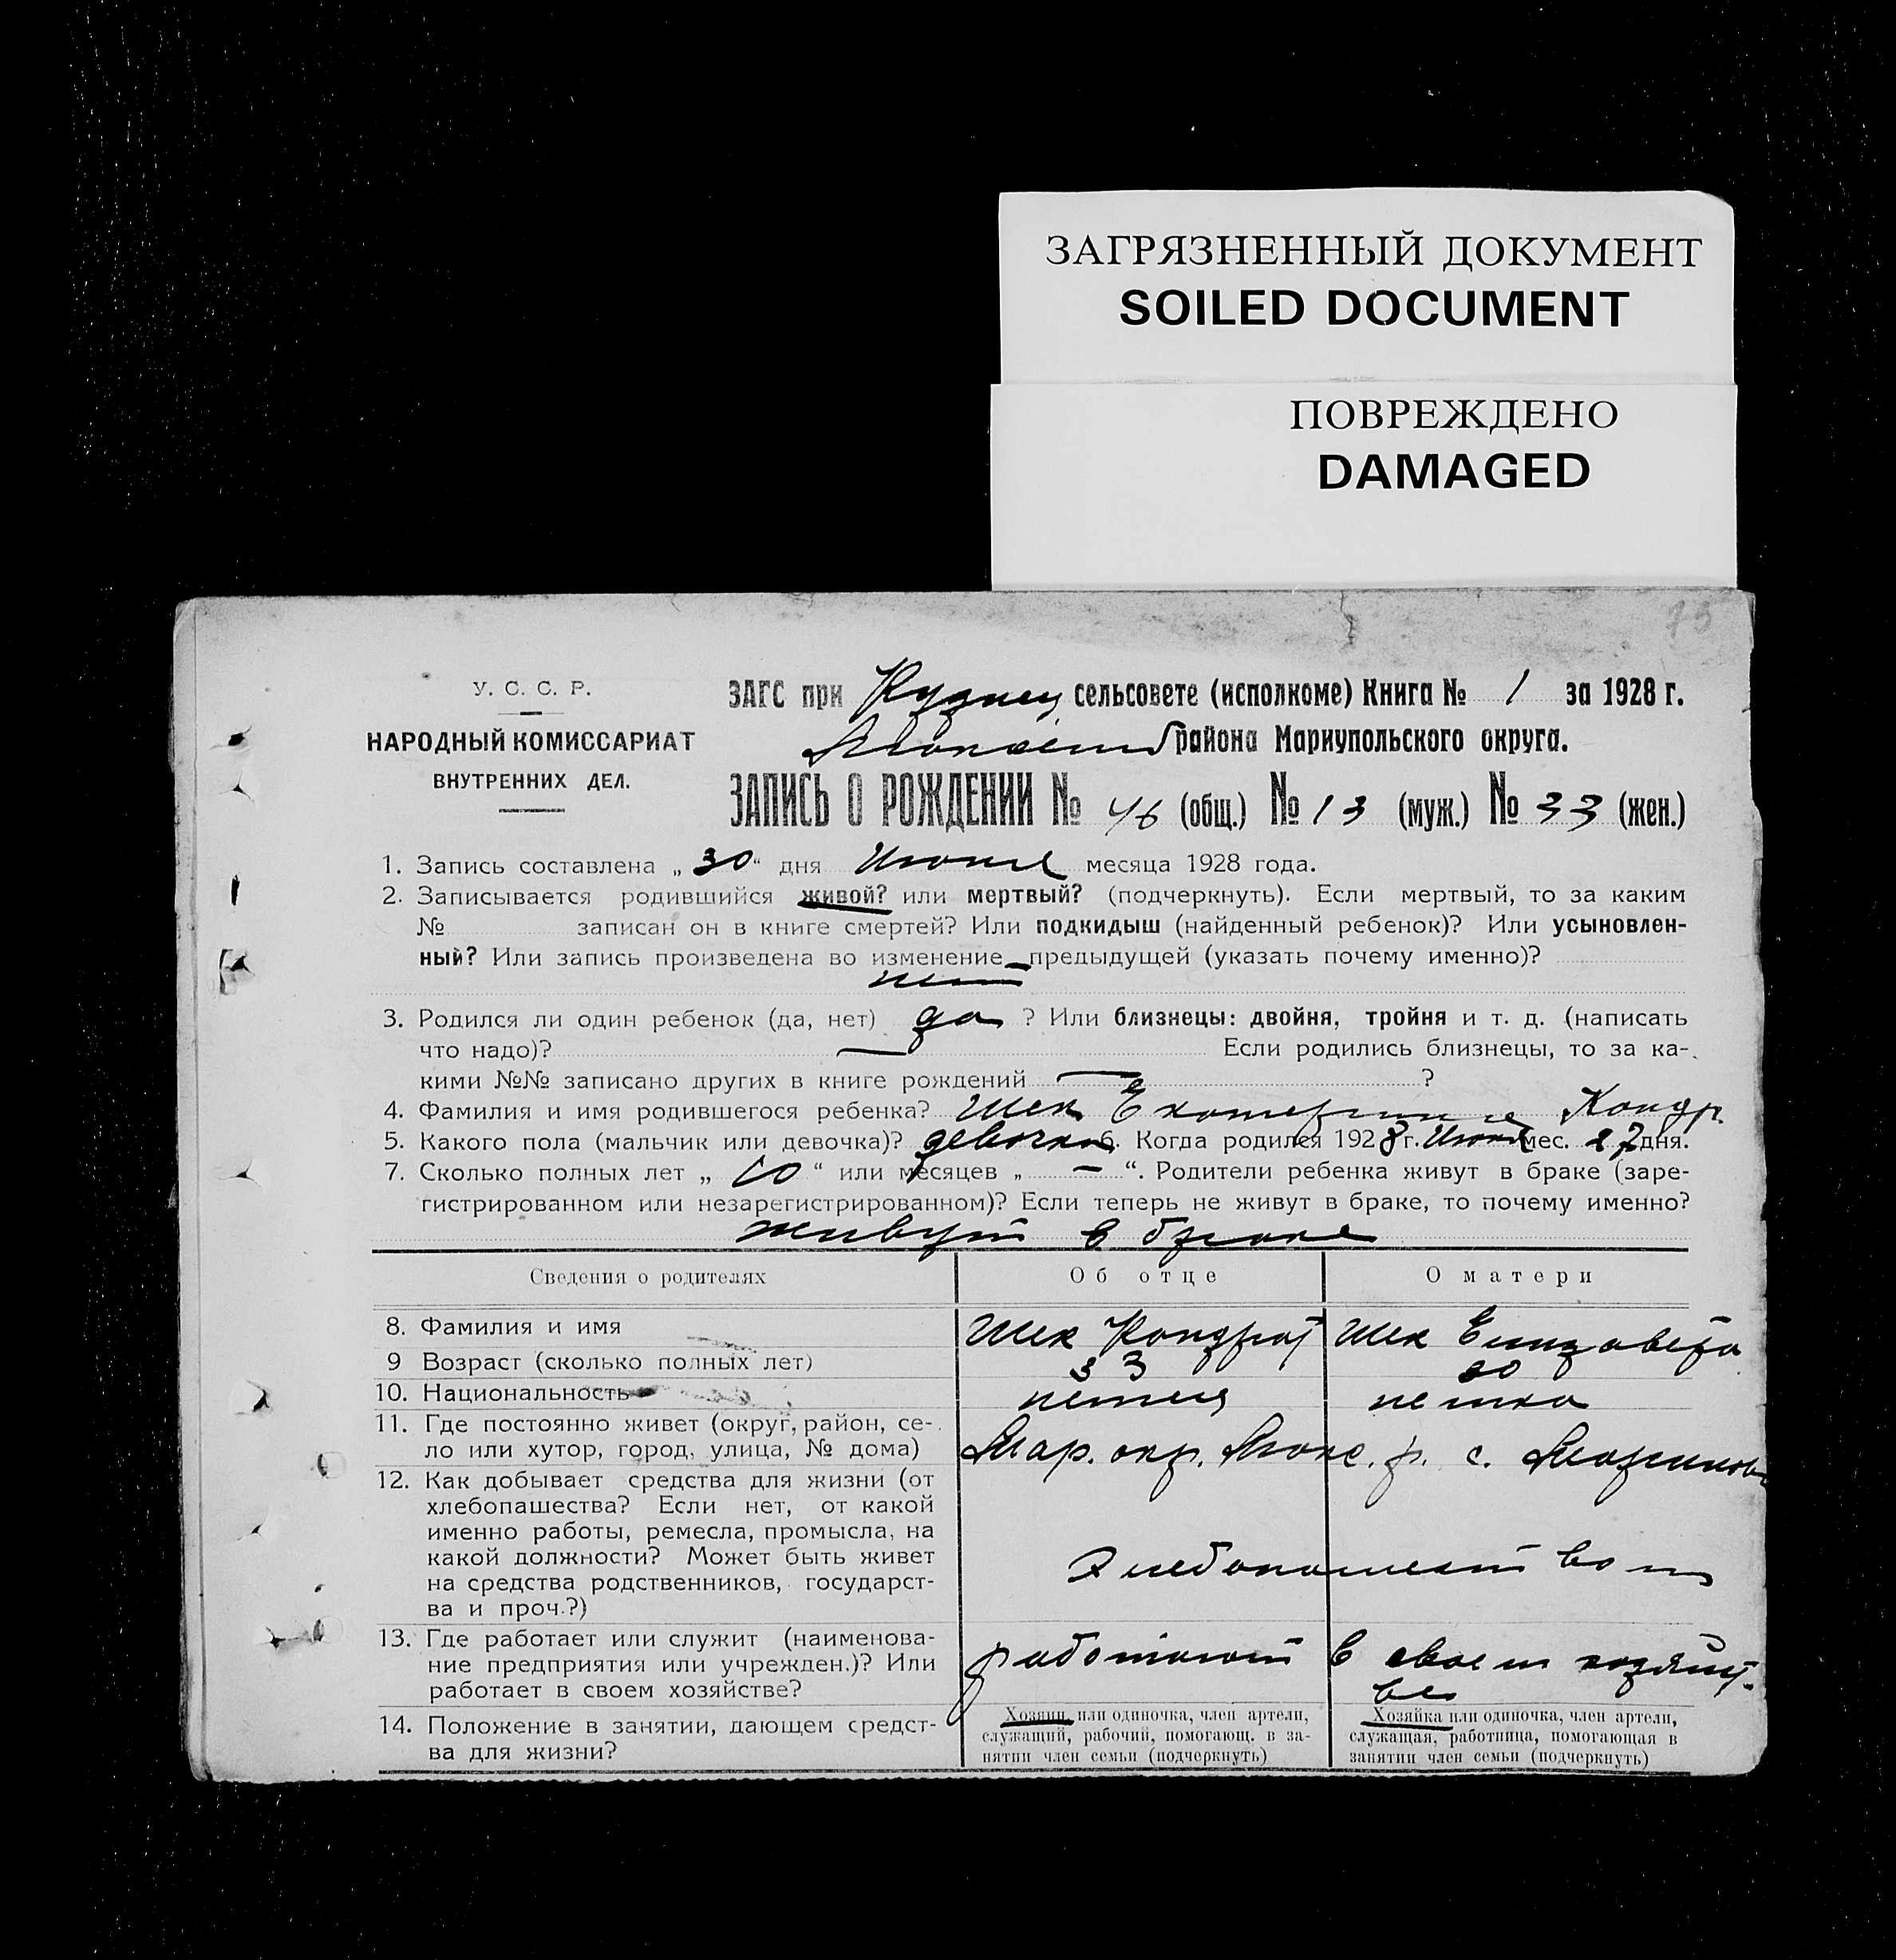 ЗАГРЯЗНЕННЫЙ ДОКУМЕНТ
SOILED DOCUMENT
ПОВРЕЖДЕНО
DAMAGED
73
У. С. С. Р.
НАРОДНЫЙ КОМИССАРИАТ
ВНУТРЕННИХ ДЕЛ.
ЗАГС при Кузнец сельсовете (исполкоме) Книга № 1 за 1928 г.
района Мариупольского округа.
ЗАПИСЬ О РОЖДЕНИИ № 46 (общ.) № 13 (муж.) № 33 (жен.)
1. Запись составлена „ 30 “ дня Июня месяца 1928 года.
2. Записывается родившийся живой? или мертвый? (подчеркнуть). Если мертвый, то за каким
№ записан он в книге смертей? Или подкидыш (найденный ребенок)? Или усыновлен-
ный? Или запись произведена во изменение предыдущей (указать почему именно)?
нет
3. Родился ли один ребенок (да, нет) да ? Или близнецы: двойня, тройня и т. д. (написать
что надо)? — Если родились близнецы, то за ка-
кими №№ записано других в книге рождений — ?
4. Фамилия и имя родившегося ребенка? Шек Екатерина Кондр.
5. Какого пола (мальчик или девочка)? девочка 6. Когда родился 1928 г. Июня мес. 27 дня.
7. Сколько полных лет „ 10 “ или месяцев „ — “. Родители ребенка живут в браке (заре-
гистрированном или незарегистрированном)? Если теперь не живут в браке, то почему именно?
живут в браке
Сведения о родителях Об отце О матери
8. Фамилия и имя Шек Кондрат Шек Елизавета
9 Возраст (сколько полных лет) 33 30
10. Национальность немец немка
11. Где постоянно живет (округ, район, се-
ло или хутор, город, улица, № дома) Мар. окр. р. с.
12. Как добывает средства для жизни (от
хлебопашества? Если нет, от какой
именно работы, ремесла, промысла, на
какой должности? Может быть живет
на средства родственников, государст-
ва и проч.?)
Хлебопашеством
13. Где работает или служит (наименова-
ние предприятия или учрежден.)? Или
работает в своем хозяйстве?
работают в своем хозяйст-
ве
14. Положение в занятии, дающем средст-
ва для жизни?
Хозяин, или одиночка, член артели,
служащий, рабочий, помогающ. в за-
нятии член семьи (подчеркнуть)
Хозяйка или одиночка, член артели,
служащая, работница, помогающая в
занятии член семьи (подчеркнуть)